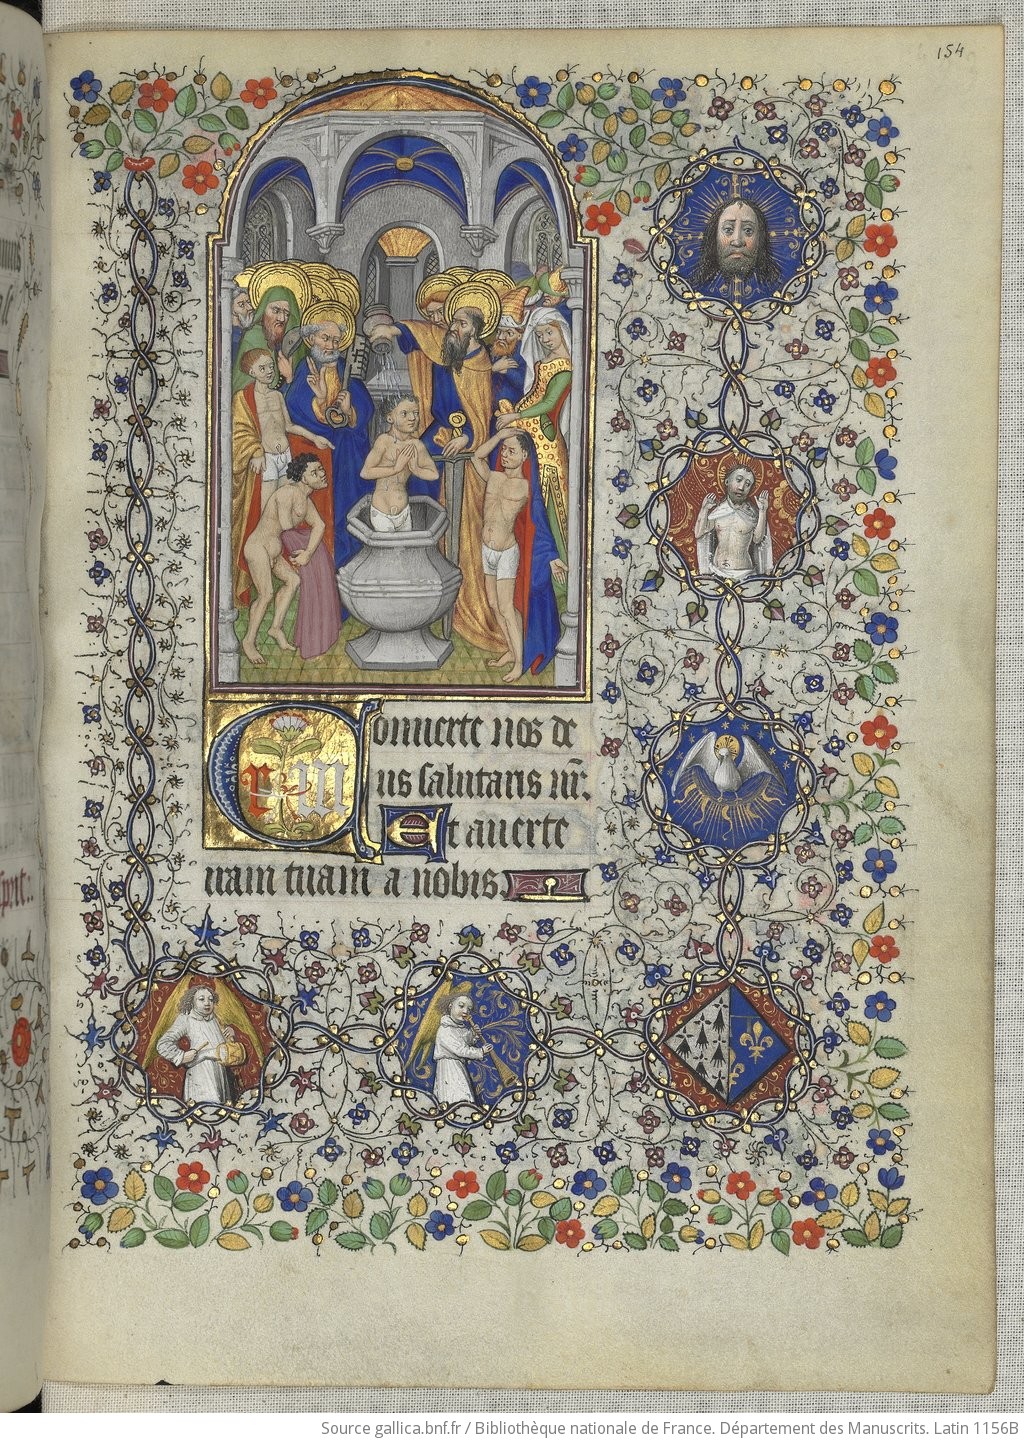 154
Conuerte nos de
us salutaris nr̄.
Et auerte
iram tuam a nobis.
Source gallica.bnf.fr / Bibliothèque nationale de France. Département des Manuscrits. Latin 1156B